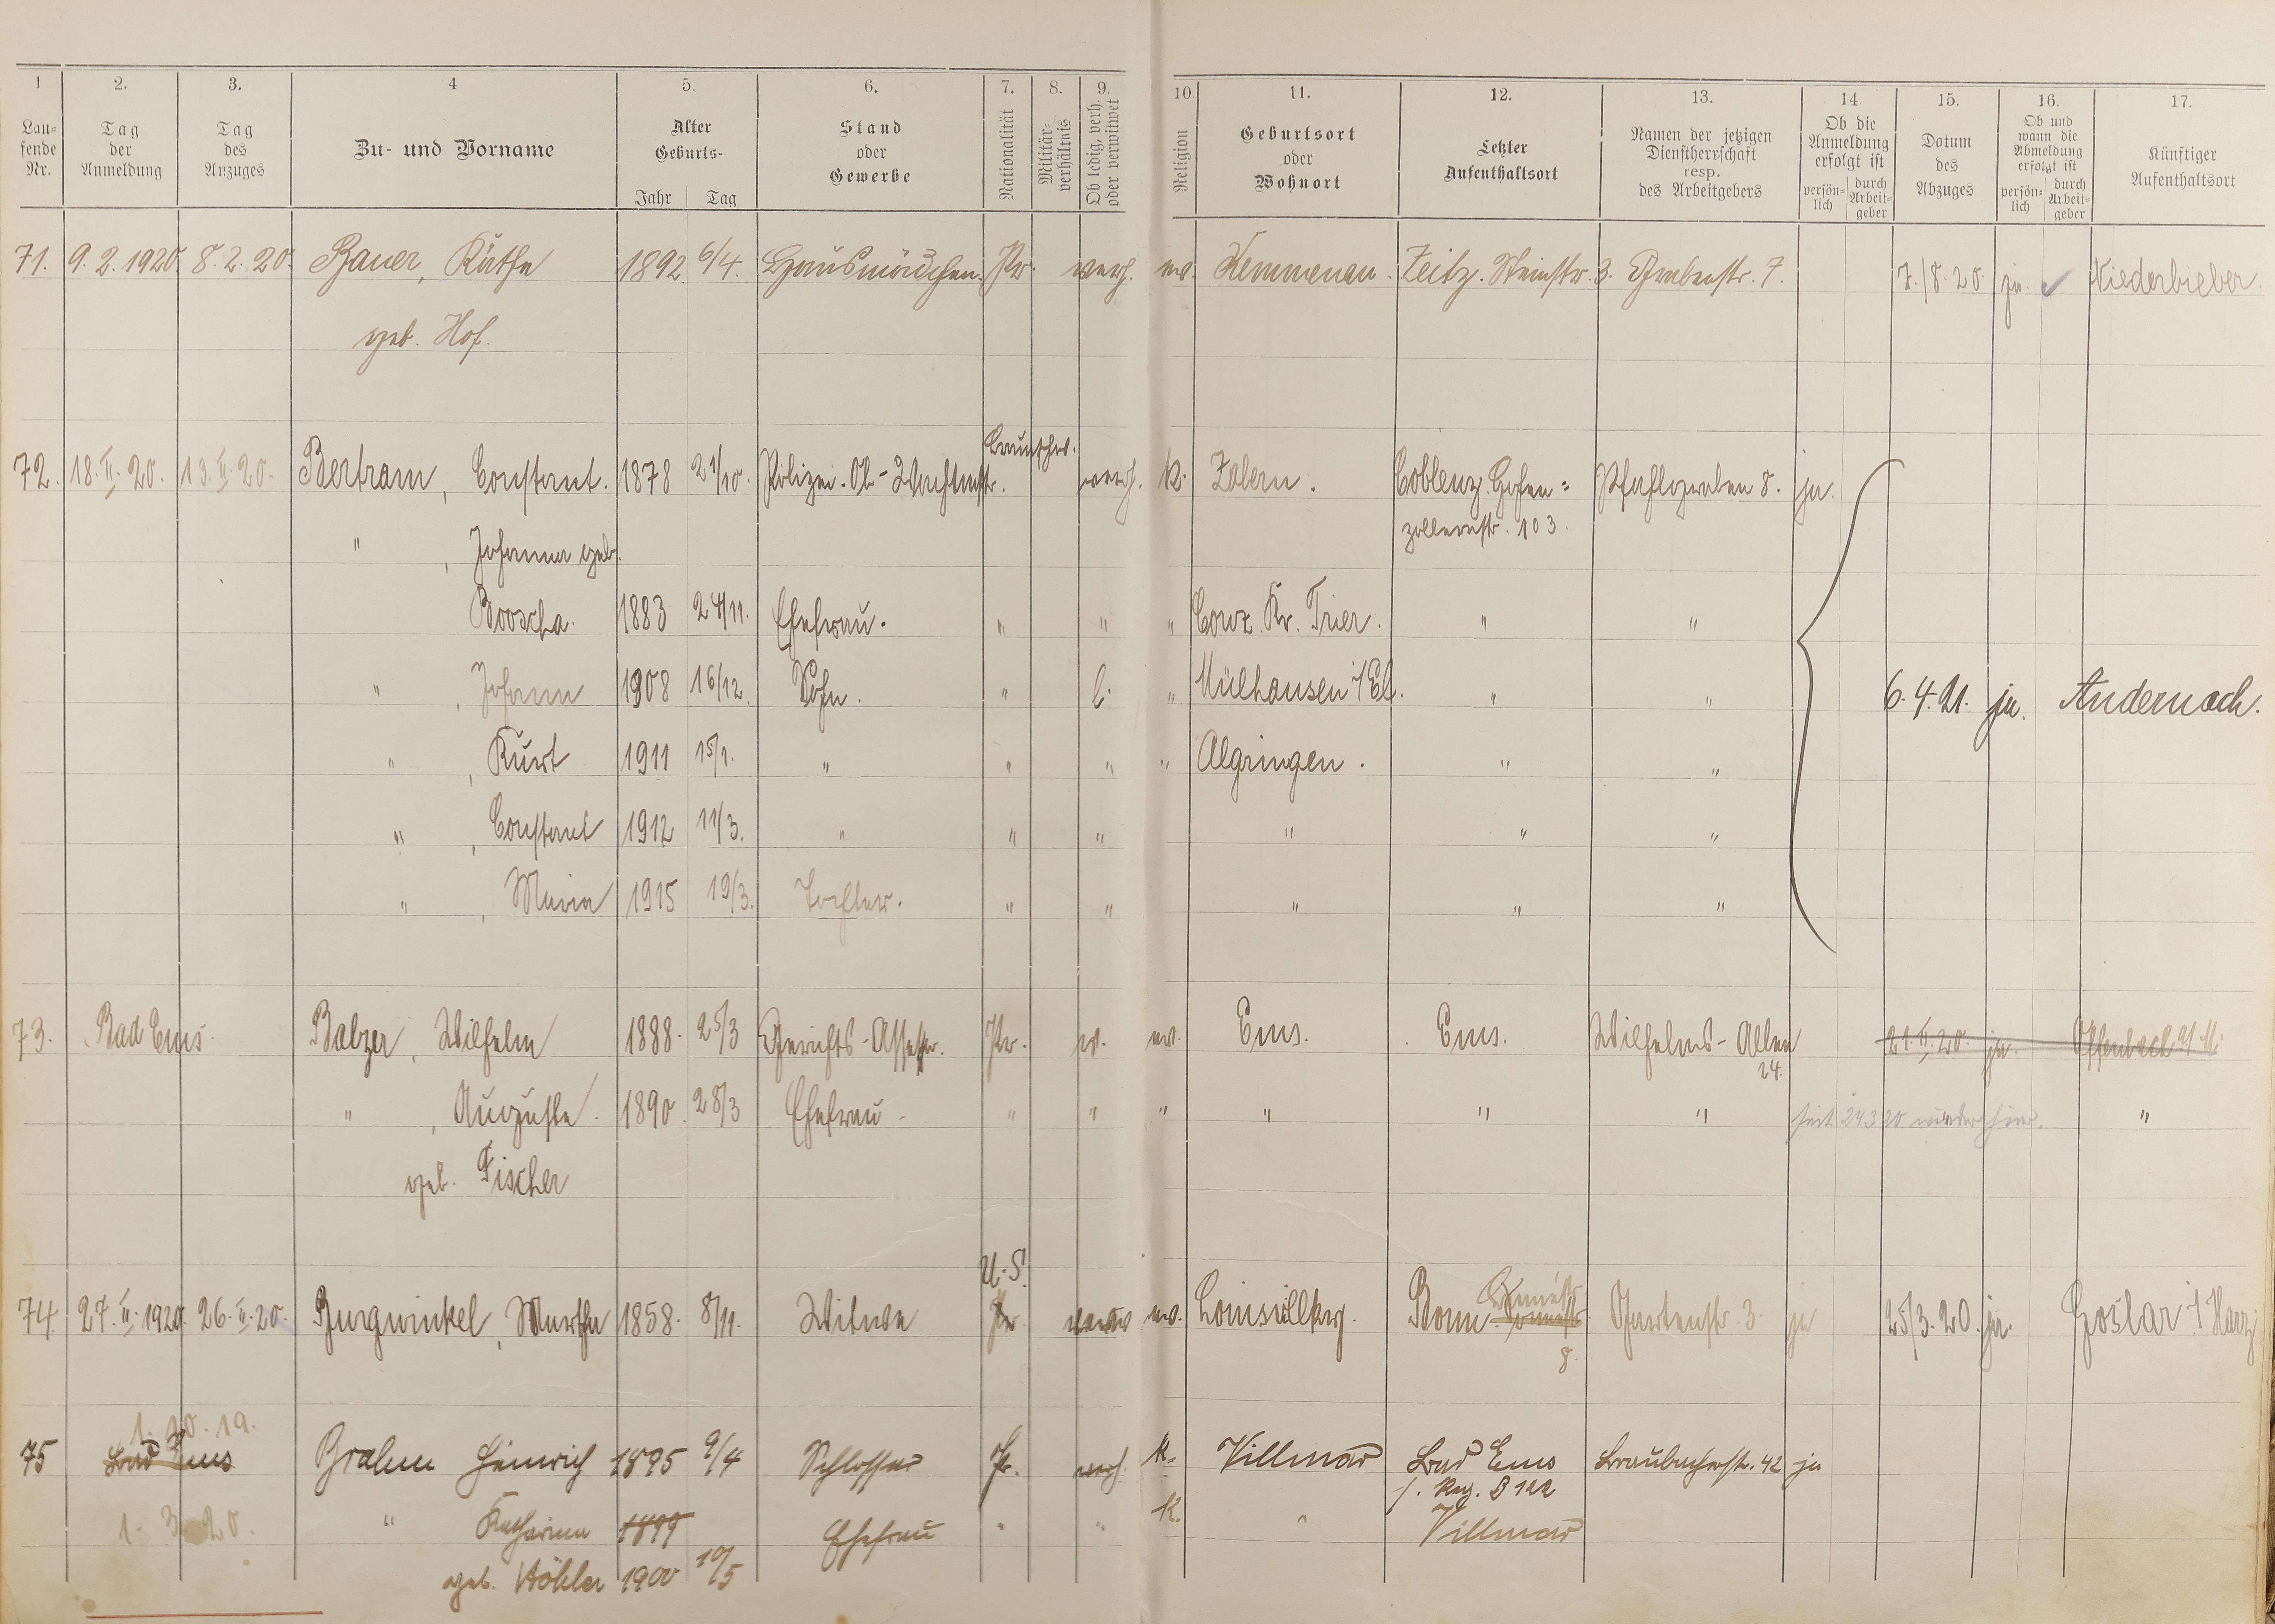 1 2. 3. 4 5. 6. 7. 8. 9. 10. 11. 12. 13. 14. 15. 16. 17.
Lau-
fende
Nr.
Tag
der
Anmeldung
Tag
des
Anzuges
Zu- und Vorname
Alter
Geburts-
Jahr Tag
Stand
oder
Gewerbe
Nationalität
Militär-
verhältnis
Ob ledig, verh.
oder verwitwet
Religion
Geburtsort
oder
Wohnort
Letzter
Aufenthaltsort
Namen der jetzigen
Dienstherrschaft
resp.
des Arbeitgebers
Ob die
Anmeldung
erfolgt ist
persön-
lich
durch
Arbeit-
geber
Datum
des
Abzuges
Ob und
wann die
Abmeldung
erfolgt ist
persön-
lich
durch
Arbeit-
geber
Künftiger
Aufenthaltsort
71. 9. 2. 1920. 8. 2. 20. Bauer, Käthe 1892. 6/4. Hausmädchen. Pr. verh. ev. Kemmenau. Zeitz. Steinstr. 3. Grabenstr. 7. 7./8. 20 ja. ✓ Niederbieber.
geb. Hof.
Braunschw.
72. 18. II. 20. 13. II. 20. Bertram, Constant. 1878 21/10. Polizei-Ob-Wachtmstr. verh. K. Zabern. Coblenz. Hohen= Pfahlgraben 8. ja.
zollernstr. 103.
" , Johanna geb.
1883 24/11. Ehefrau. " " " Conz. Kr. Trier. " "
" , Johann 1908 16/12. Sohn. " l. " Mülhausen i/Els. " " 6. 4. 21. ja. Andernach.
" , Kurt 1911 15/1. " " " " Algringen. " "
" , Constant 1912 11/3. " " " " " "
" , Maria 1915 19/3. Tochter. " " " " "
73. Bad Ems. Balzer, Wilhelm 1888. 25/3 Gerichts-Assessor. Pr. v. ev. Ems. Ems. Wilhelms-Allee 21. II. 20. ja. Offenbach a/M.
24.
" , Auguste. 1890. 28/3 Ehefrau " " " " " " seit 24 3 20 wieder hier. "
geb. Fischer
U. S.
74. 27. II. 1920. 26. II. 20. Burgwinkel, Martha 1858. 8/11. Witwe Pr. verw ev. Bonn Gartenstr. 3. ja 25/3. 20. ja. Goslar i/Harz
8.
1. 10. 19.
75 Bad Ems Brahm Heinrich 1895 9/4 Schlosser Pr. verh. K. Villmar Bad Ems Braubacherstr. 42 ja
s. Reg. B 122
1. 3. 20. " Katharina 1899 Ehefrau " " K. " Villmar
geb. Höhler 1900 10/5